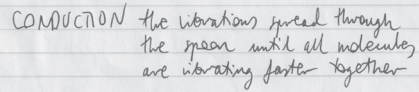 CONDUCTION the vibrations spread through
the spoon until all molecules
are vibrating faster together